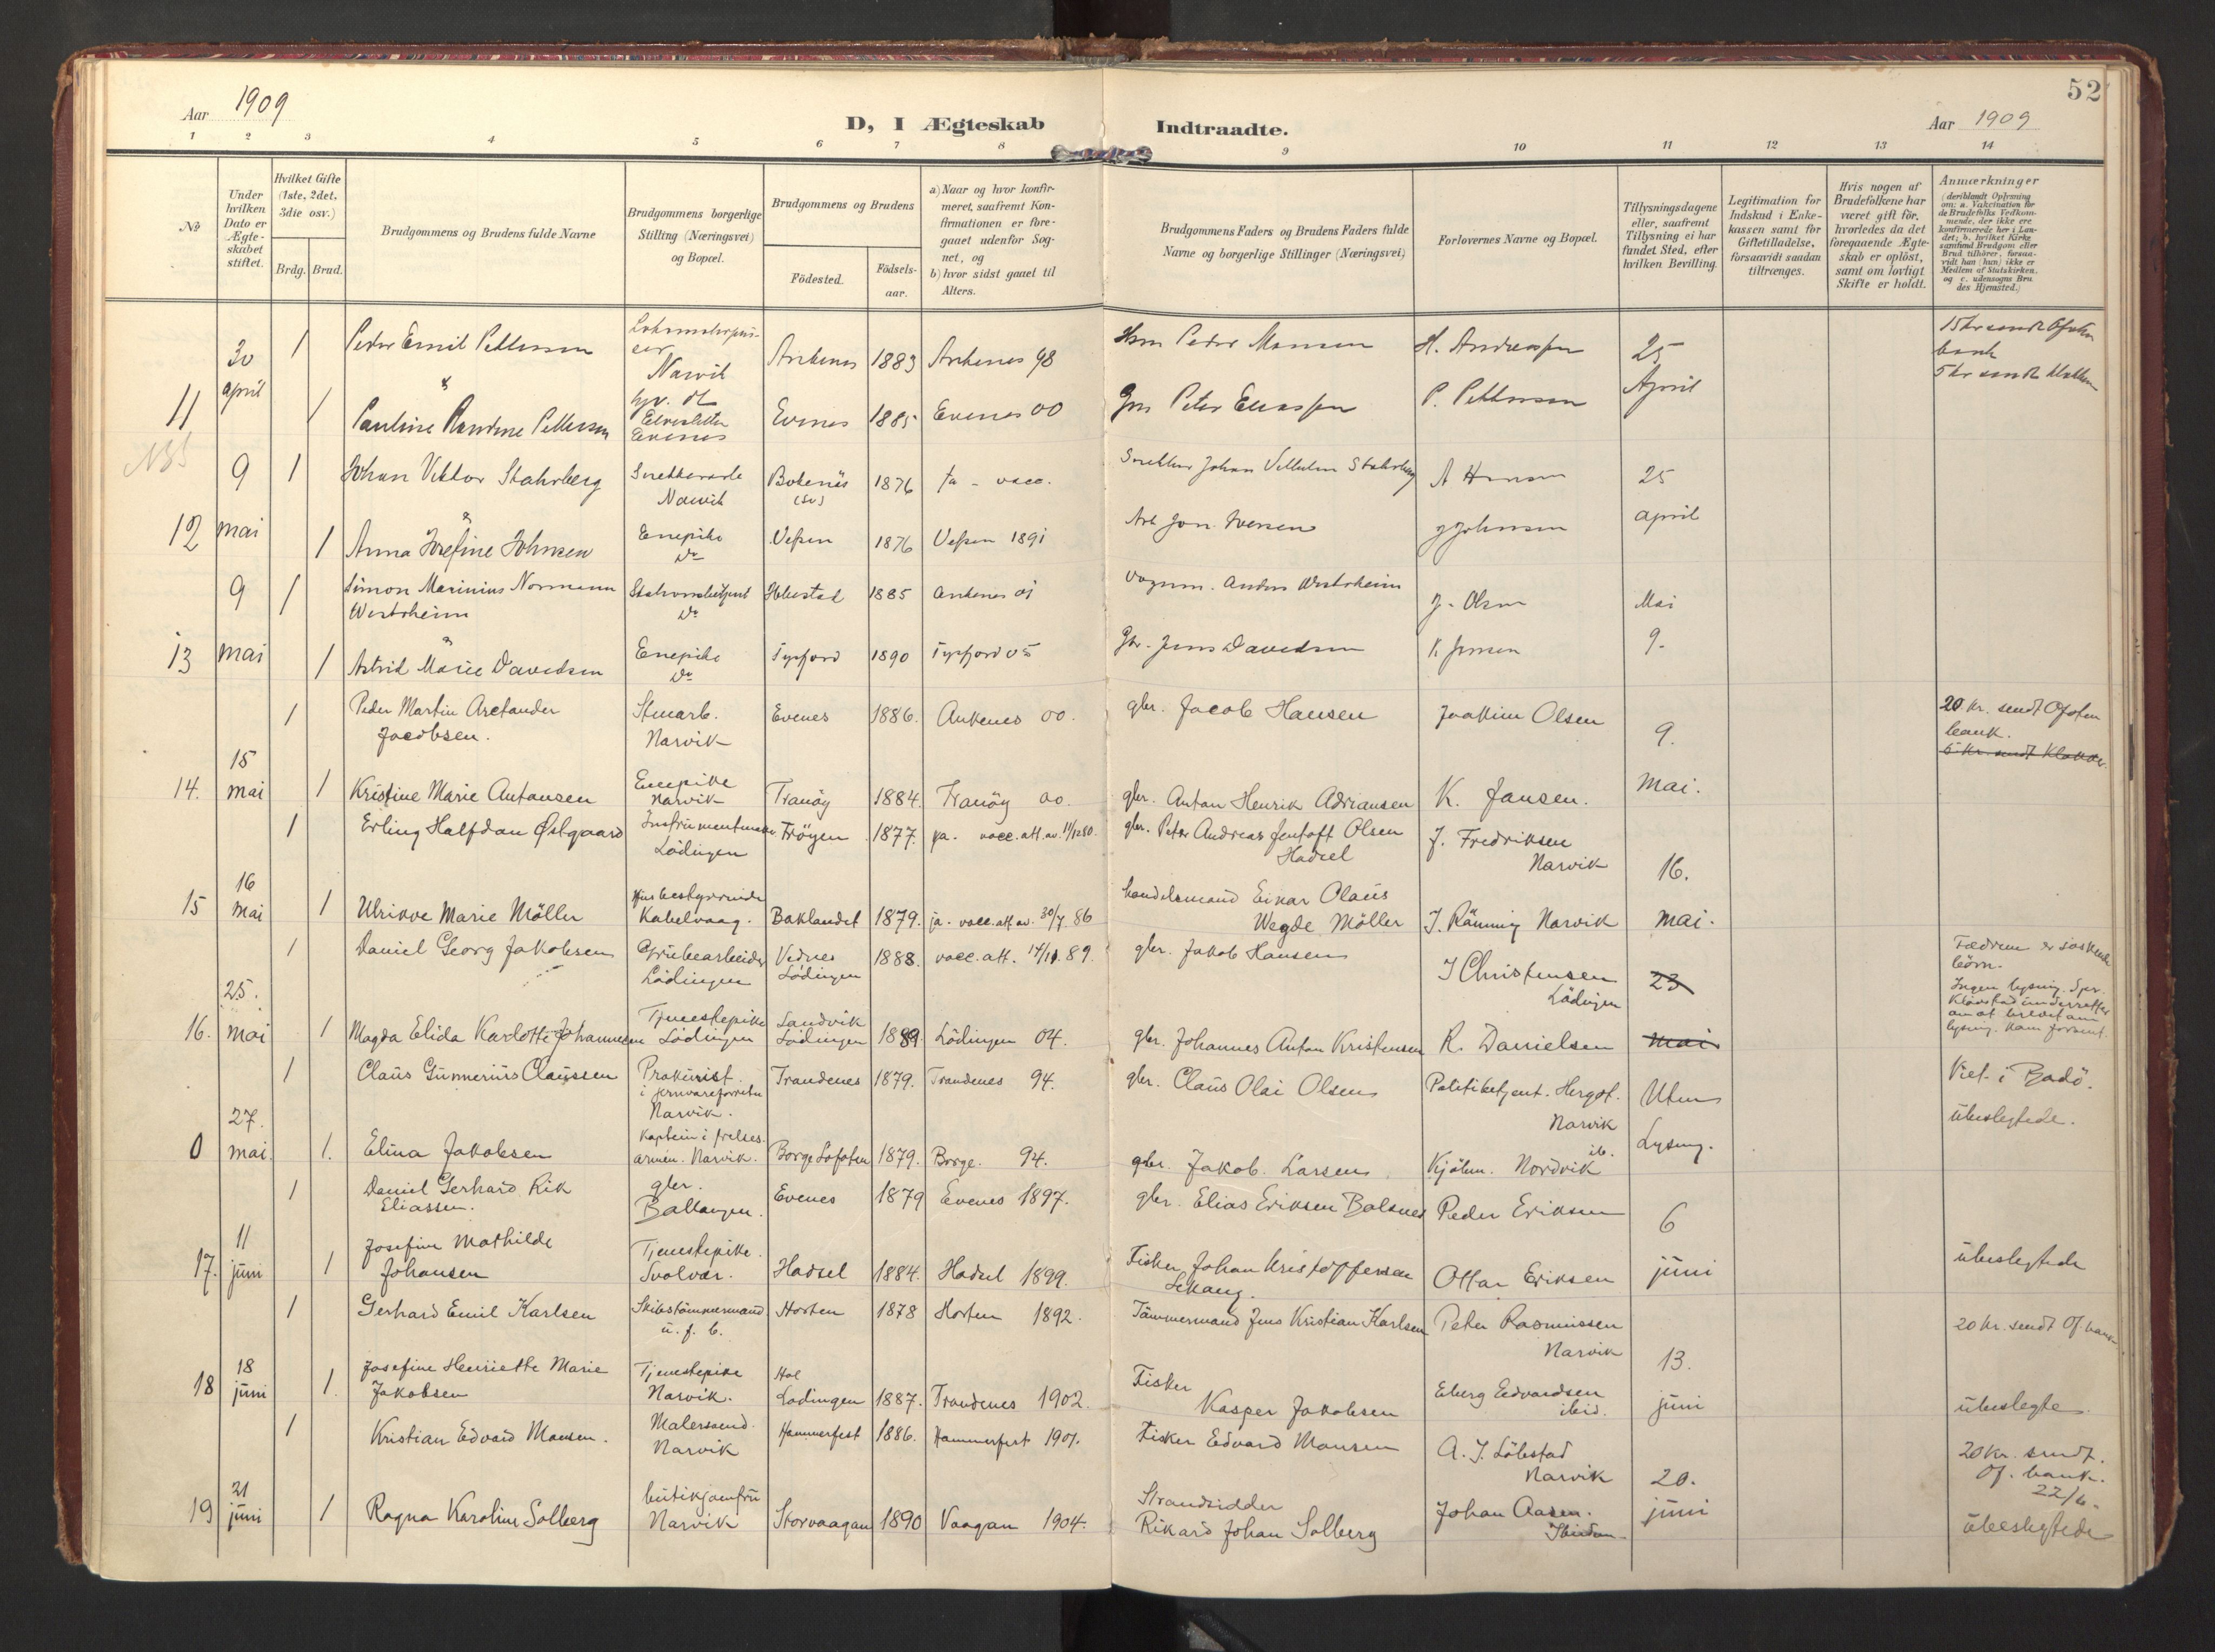 52
Aar 1909
D, I Ægteskab Indtraadte.
Aar 1909
1 2 3 4 5 6 7 8 9 10 11 12 13 14
No
Under hvilken Dato er Ægteskabet stiftet.
Hvilket Gifte (1ste, 2det, 3die osv.)
Brdg. Brud.
Brudgommens og Brudens fulde Navne
Brudgommens borgerlige Stilling (Næringsvei) og Bopæl.
Brudgommens og Brudens
Födested.
Födselsaar.
a) Naar og hvor konfirmeret, saafremt Konfirmationen er foregaaet udenfor Sognet, og
b) hvor sidst gaaet til Alters.
Brudgommens Faders og Brudens Faders fulde Navne og borgerlige Stillinger (Næringsvei)
Forlovernes Navne og Bopæl.
Tillysningsdagene eller, saafremt Tillysning ei har fundet Sted, efter hvilken Bevilling.
Legitimation for Indskud i Enkekassen samt for Giftetilladelse, forsaavidt saadan tiltrænges.
Hvis nogen af Brudefolkene har været gift för, hvorledes da det foregaaende Ægteskab er oplöst, samt om lovligt Skifte er holdt.
Anmærkninger
(deriblandt Oplysning om: a. Vakcination for de Brudefolks Vedkommende, der ikke ere konfirmerede her i Landet; b. hvilket Kirkesamfund Brudgom eller Brud tilhörer, forsaavidt han (hun) ikke er Medlem af Statskirken, og c. udensogns Brudes Hjemsted.)
30 1 Peder Emil Pettersen Narvik Ankenes 1883 Ankenes 98 Peder Monsen H. Andreassen 25
11 april 1 Pauline Pettersen Evenes Evenes 1885 Evenes 00 P. Pettersen April
9 1 Johan Viktor Stahrberg Narvik 1876 vacc. Snekker Johan Stahrberg A Hansen 25
12 mai 1 Anna Josefine Johnsen Enepike Do Vefsen 1876 Vefsen 1891 J Johnsen april
9 1 Simon Marinius Normann Westrheim Do 1885 Ankenes 01 Anders Westrheim J. Olsen Mai
13 mai 1 Astrid Marie Davidsen Enepike Do Tysfjord 1890 Tysfjord 05 Jens Davidsen K. Jensen 9.
1 Peder Martin Arctander Jacobsen. Narvik Evenes 1886. Ankenes 00. gbr. Jacob Hansen Joakim Olsen 9. 20 kr. sendt Ofoten bank.
15
14. mai 1 Kristine Marie Antonsen Enepike Narvik Tranöy 1884. Tranöy 00. gbr. Anton Henrik Adriansen K. Jansen. mai.
1 Erling Halfdan Østgaard Lödingen 1877. vacc. att. av. gbr. Peter Andreas Jentoft Olsen Hadsel J. Fredriksen Narvik 16.
16
15 mai 1 Ulrikke Marie Möller Husbestyrerinde Kabelvaag. Baklandet 1879. ja. vacc. att. av. 30/7 86 handelsmand Einar Olaus Wegde Möller Narvik mai.
1 Daniel Georg Jakobsen Grubearbeider Lödingen Lödingen 1888. vacc. att. gbr. Jakob Hansen J Christensen Lödingen 23
25.
16. mai 1 Magda Elida Karlotte Johannesen Tjenestepike Lödingen Sandvik Lödingen 1889. Lödingen 04. gbr. Johannes Anton Kristensen R. Danielsen mai
1 Claus Gunnerius Claussen Prokurist i jernvareforretn. Narvik. Trondenes 1879. Trondenes 94. gbr. Claus Olai Olsen Politibetjent. Narvik Uten Viet i Bodö.
27.
0 mai. 1. Elina Jakobsen Kaptein i frelsesarmeen. Narvik. Borge Lofoten 1879. Borge. 94. gbr. Jakob Larsen Kjöbm. Nordvik ib. Lysning. ubeslegtede.
1 Daniel Gerhard Rik Eliassen. gbr. Ballangen. Evenes 1879 Evenes 1897. gbr. Elias Eriksen Balsnes Peder Eriksen 6
11
17. juni 1 Josefine Mathilde Johansen Tjenestepike. Svolvær. Hadsel 1884. Hadsel 1899. Fisker Johan Kristoffersen Ottar Eriksen juni ubeslegtede
1 Gerhard Emil Karlsen Skibstömmermand u. f. b. Horten 1878 Horten 1892. Tömmermand Jens Kristian Karlsen Peter Rasmussen Narvik 13. 20 kr. sendt Of. bank
18
18 juni 1. Josefine Henriette Marie Jakobsen Tjenestepike Narvik. Hol Lödingen 1887. Trondenes 1902. Fisker Kasper Jakobsen Edvardsen ibid. juni ubeslegte.
1 Kristian Edvard Monsen. Malersvend. Narvik Hammerfest 1886. Hammerfest 1901. Fisker Edvard Monsen A. J. Löbstad Narvik 20. 20 kr. sendt. Of. bank. 22/6.
21
19 juni 1 Ragna Karoline Solberg butikjomfru Narvik Storvaagan 1890 Vaagan 1904. Strandsidder Rikard Johan Solberg Johan Aasen. juni ubeslegtede